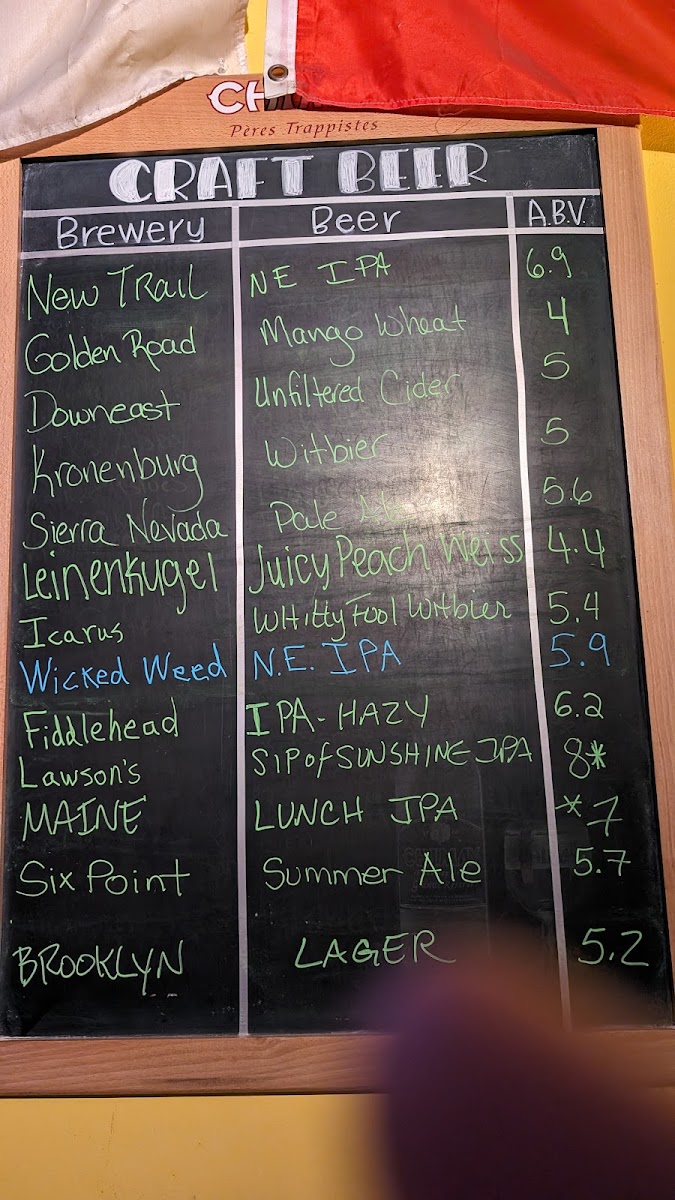 CH
Pères Trappistes
CRAFT BEER
Brewery Beer A.B.V.
New Trail NE IPA 6.9
Golden Road Mango Wheat 4
Downeast Unfiltered Cider 5
Kronenburg Witbier 5
Sierra Nevada Pale Ale 5.6
Leinenkugel Juicy Peach Weiss 4.4
Icarus WHittyFool Witbier 5.4
Wicked Weed N.E. IPA 5.9
Fiddlehead IPA-HAZY 6.2
Lawson's SIP of SUNSHINE IPA 8*
MAINE LUNCH IPA *7
Six Point Summer Ale 5.7
BROOKLYN LAGER 5.2